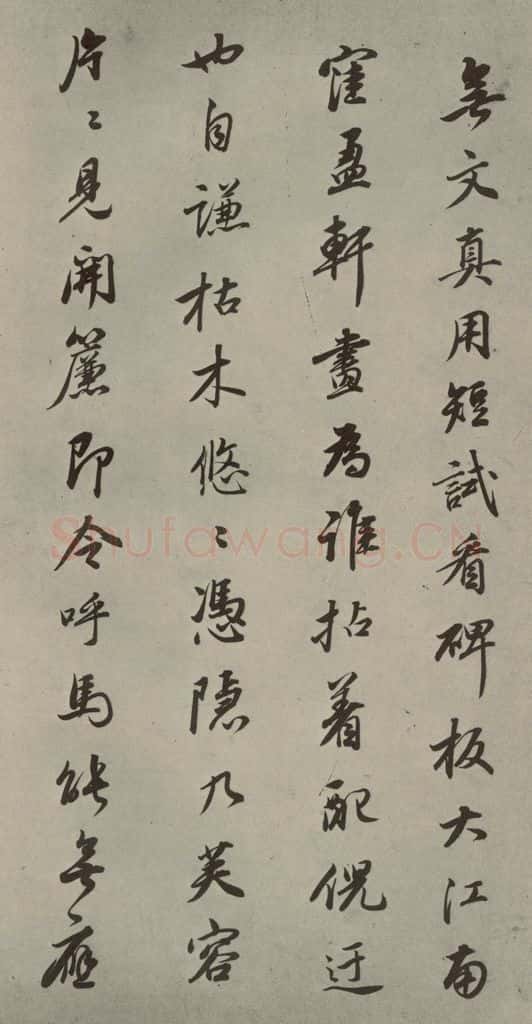 無文真用短試看碑板大江南
窪盈軒畫為誰拈着配倪迂
也自謙枯木悠〻憑隱几芙容
片〻見開簾即今呼馬能無應
Shufawang.CN